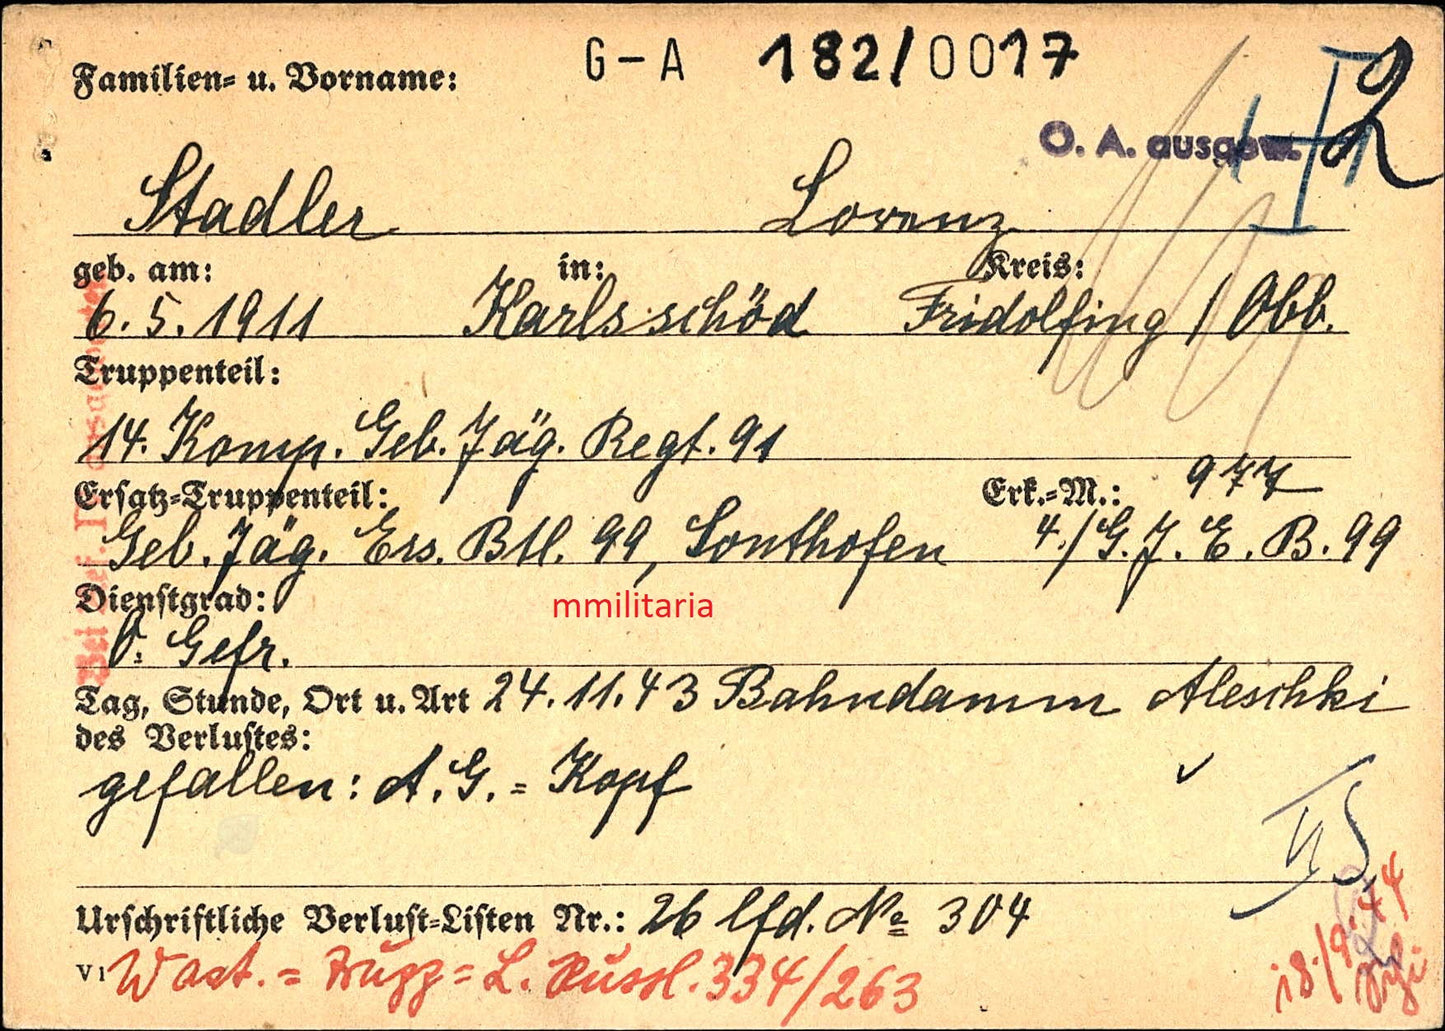 G-A 182/0017
Familien- u. Vorname:
O. A. ausgew. 2
Stadler Lorenz
geb. am: in: Kreis:
6.5.1911 Karlsschöd Fridolfing / Obb.
Truppenteil:
14. Komp. Geb. Jäg. Regt. 91
Ersatz-Truppenteil: Erk.-M.: 977
Geb. Jäg. Ers. Btl. 99, Sonthofen 4./G.J.E.B. 99
Dienstgrad:
mmilitaria
O. Gefr.
Tag, Stunde, Ort u. Art 24.11.43 Bahndamm Aleschki
des Verlustes:
gefallen: A.G. = Kopf
Urschriftliche Verlust-Listen Nr.: 26 lfd. № 304
V 1 L. Russl. 334/263
18./9.44